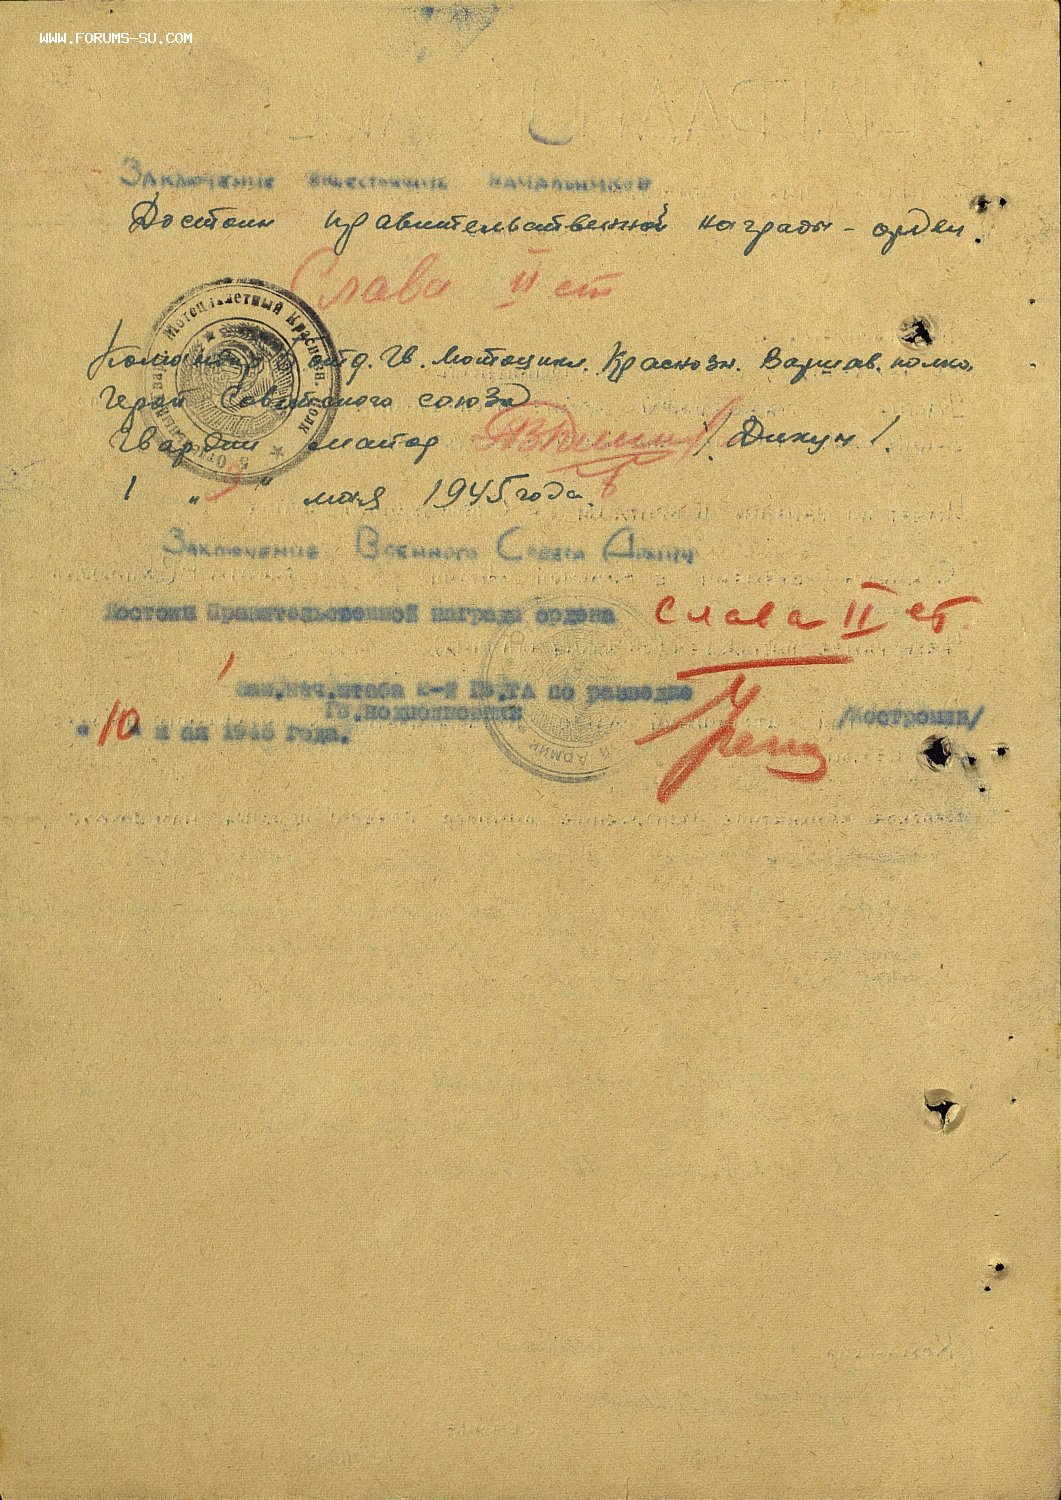 WWW.FORUMS-SU.COM
Заключение вышестоящих начальников
Достоин правительственной награды - орден
Слава II ст
отд. Гв. Мотоцикл. Краснозн. Варшав. полка,
Герой Советского союза
Гвардии майор / Дикун /
"9" мая 1945 года.
Заключение Военного Совета Армии
Достоин Правительственной награды ордена Слава II ст.
Зам.нач.штаба 2-й Гв.ТА по разведке
Гв.подполковник /Костромин/
"10" мая 1945 года.